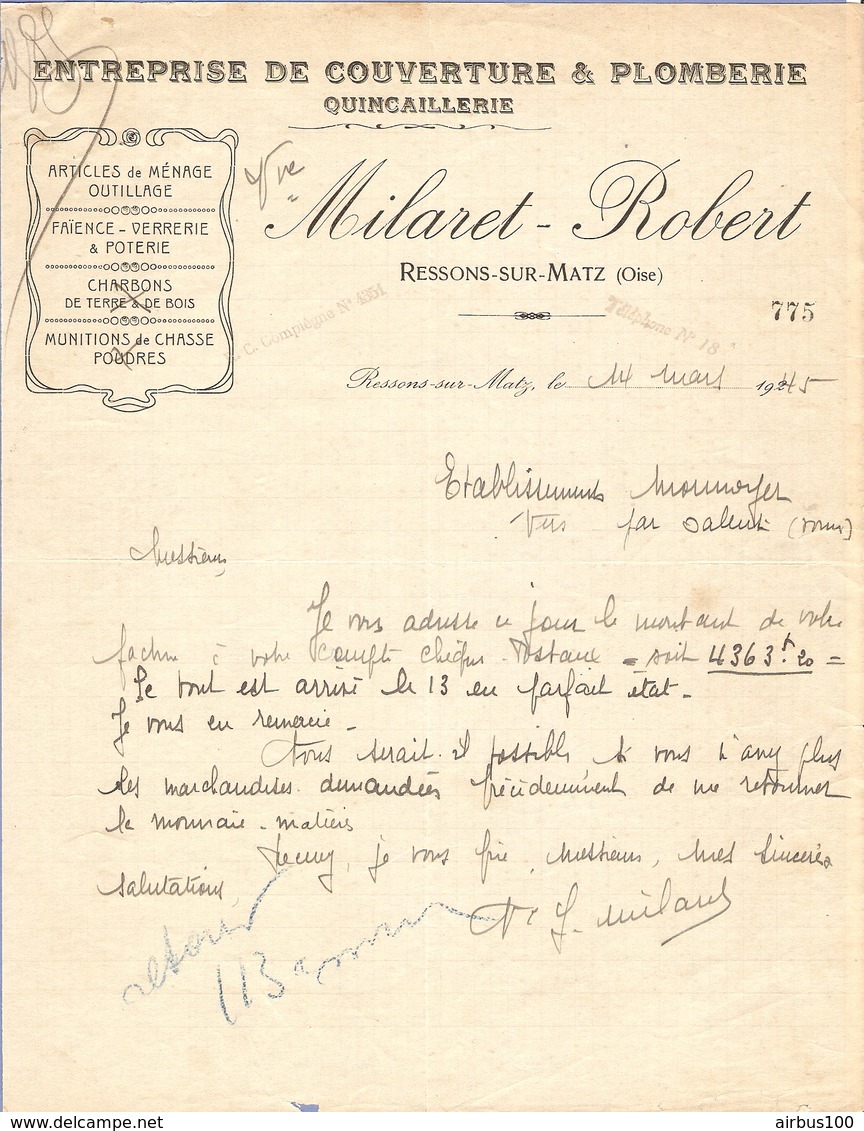 ENTREPRISE DE COUVERTURE & PLOMBERIE
QUINCAILLERIE
ARTICLES de MÉNAGE
OUTILLAGE
FAÏENCE - VERRERIE
& POTERIE
CHARBONS
DE TERRE & DE BOIS
MUNITIONS de CHASSE
POUDRES
Vve
Milaret - Robert
RESSONS-SUR-MATZ (Oise)
C. Compiègne N° 4351
Téléphone N° 18
775
Ressons-sur-Matz, le 14 mars 1945
Etablissements Monnoyer
par
Messieurs
Je vous adresse ce jour le montant de votre
facture à votre compte chèque Postaux = soit 4363f.20 =
Le tout est arrivé le 13 en parfait état -
Je vous en remercie -
Vous serait-il possible si vous n'avez plus
les marchandises demandées précédemment de me retourner
la monnaie-matière
Recevez, je vous prie, Messieurs, mes sincères
salutations,
Ve J. Milaret
113
delcampe.net
airbus100